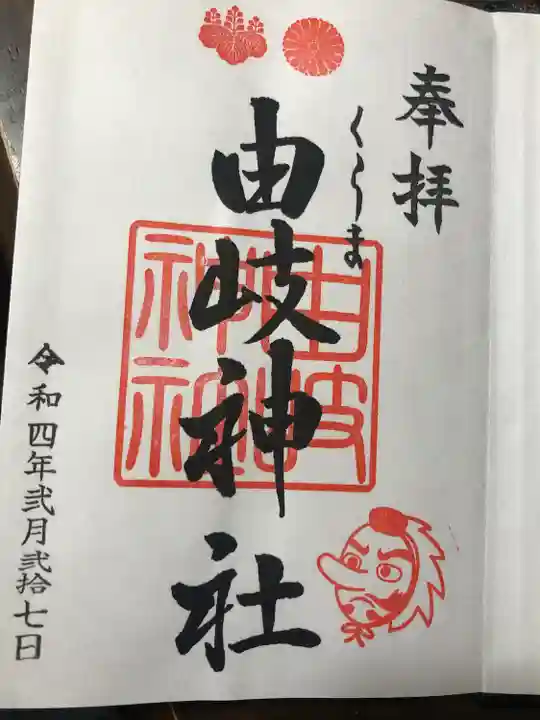 奉拝
くらま
由岐神社
由岐
神社
令和四年弐月弐拾七日